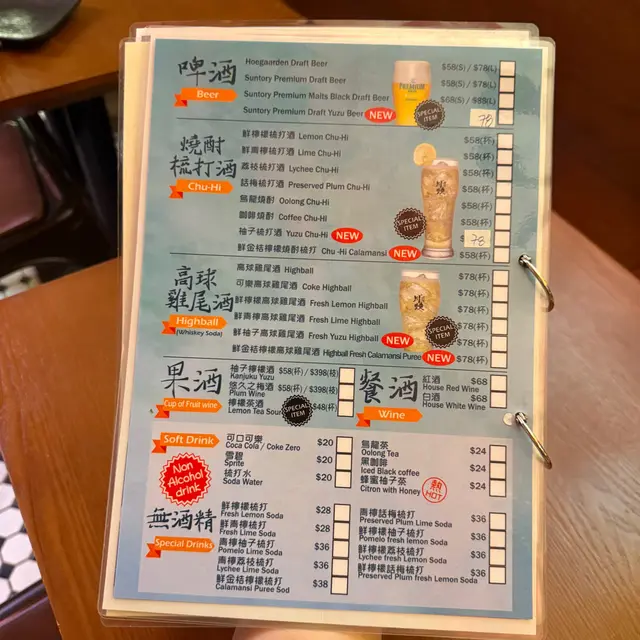 啤酒
Beer
Hoegaarden Draft Beer $58(S) / $78(L)
Suntory Premium Draft Beer $58(S) / $78(L)
Suntory Premium Malts Black Draft Beer $68(S) / $88(L)
Suntory Premium Draft Yuzu Beer NEW 78
PREMIUM
SPECIAL ITEM
燒酎
梳打酒
Chu-Hi
鮮檸檬梳打酒 Lemon Chu-Hi $58(杯)
鮮青檸梳打酒 Lime Chu-Hi $58(杯)
荔枝梳打酒 Lychee Chu-Hi $58(杯)
話梅梳打酒 Preserved Plum Chu-Hi $58(杯)
烏龍燒酎 Oolong Chu-Hi $58(杯)
咖啡燒酎 Coffee Chu-Hi $58(杯)
柚子梳打酒 Yuzu Chu-Hi NEW 78
鮮金桔檸檬燒酎梳打 Chu -Hi Calamansi NEW $58(杯)
SPECIAL ITEM
高球
雞尾酒
Highball
(Whiskey Soda)
高球雞尾酒 Highball $78(杯)
可樂高球雞尾酒 Coke Highball $78(杯)
鮮檸檬高球雞尾酒 Fresh Lemon Highball $78(杯)
鮮青檸高球雞尾酒 Fresh Lime Highball $78(杯)
鮮柚子高球雞尾酒 Fresh Yuzu Highball NEW $78(杯)
鮮金桔檸檬高球雞尾酒 Highball Fresh Calamansi Puree NEW $78(杯)
SPECIAL ITEM
果酒
Cup of Fruit wine
柚子檸檬酒 $58(杯) / $398(枝)
Kanjuku Yuzu
悠久之梅酒 $58(杯) / $398(枝)
Plum Wine
檸檬茶酒 $48(杯)
Lemon Tea Sour
SPECIAL ITEM
餐酒
Wine
紅酒 $68
House Red Wine
白酒 $68
House White Wine
Soft Drink
Non Alcohol drink
可口可樂 $20
Coca Cola / Coke Zero
雪碧 $20
Sprite
梳打水 $20
Soda Water
烏龍茶 $24
Oolong Tea
黑咖啡 $24
Iced Black coffee
蜂蜜柚子茶 $24
Citron with Honey
熱
HOT
無酒精
Special Drinks
鮮檸梳打 $28
Fresh Lemon Soda
鮮青檸梳打 $28
Fresh Lime Soda
青檸柚子梳打 $36
Pomelo Lime Soda
青檸荔枝梳打 $36
Lychee Lime Soda
鮮金桔檸檬梳打 $38
Calamansi Puree Sod
青檸話梅梳打 $36
Preserved Plum Lime Soda
鮮檸檬柚子梳打 $36
Pomelo fresh lemon Soda
鮮檸檬荔枝梳打 $36
Lychee fresh Lemon Soda
鮮檸檬話梅梳打 $36
Preserved Plum fresh Lemon Soda